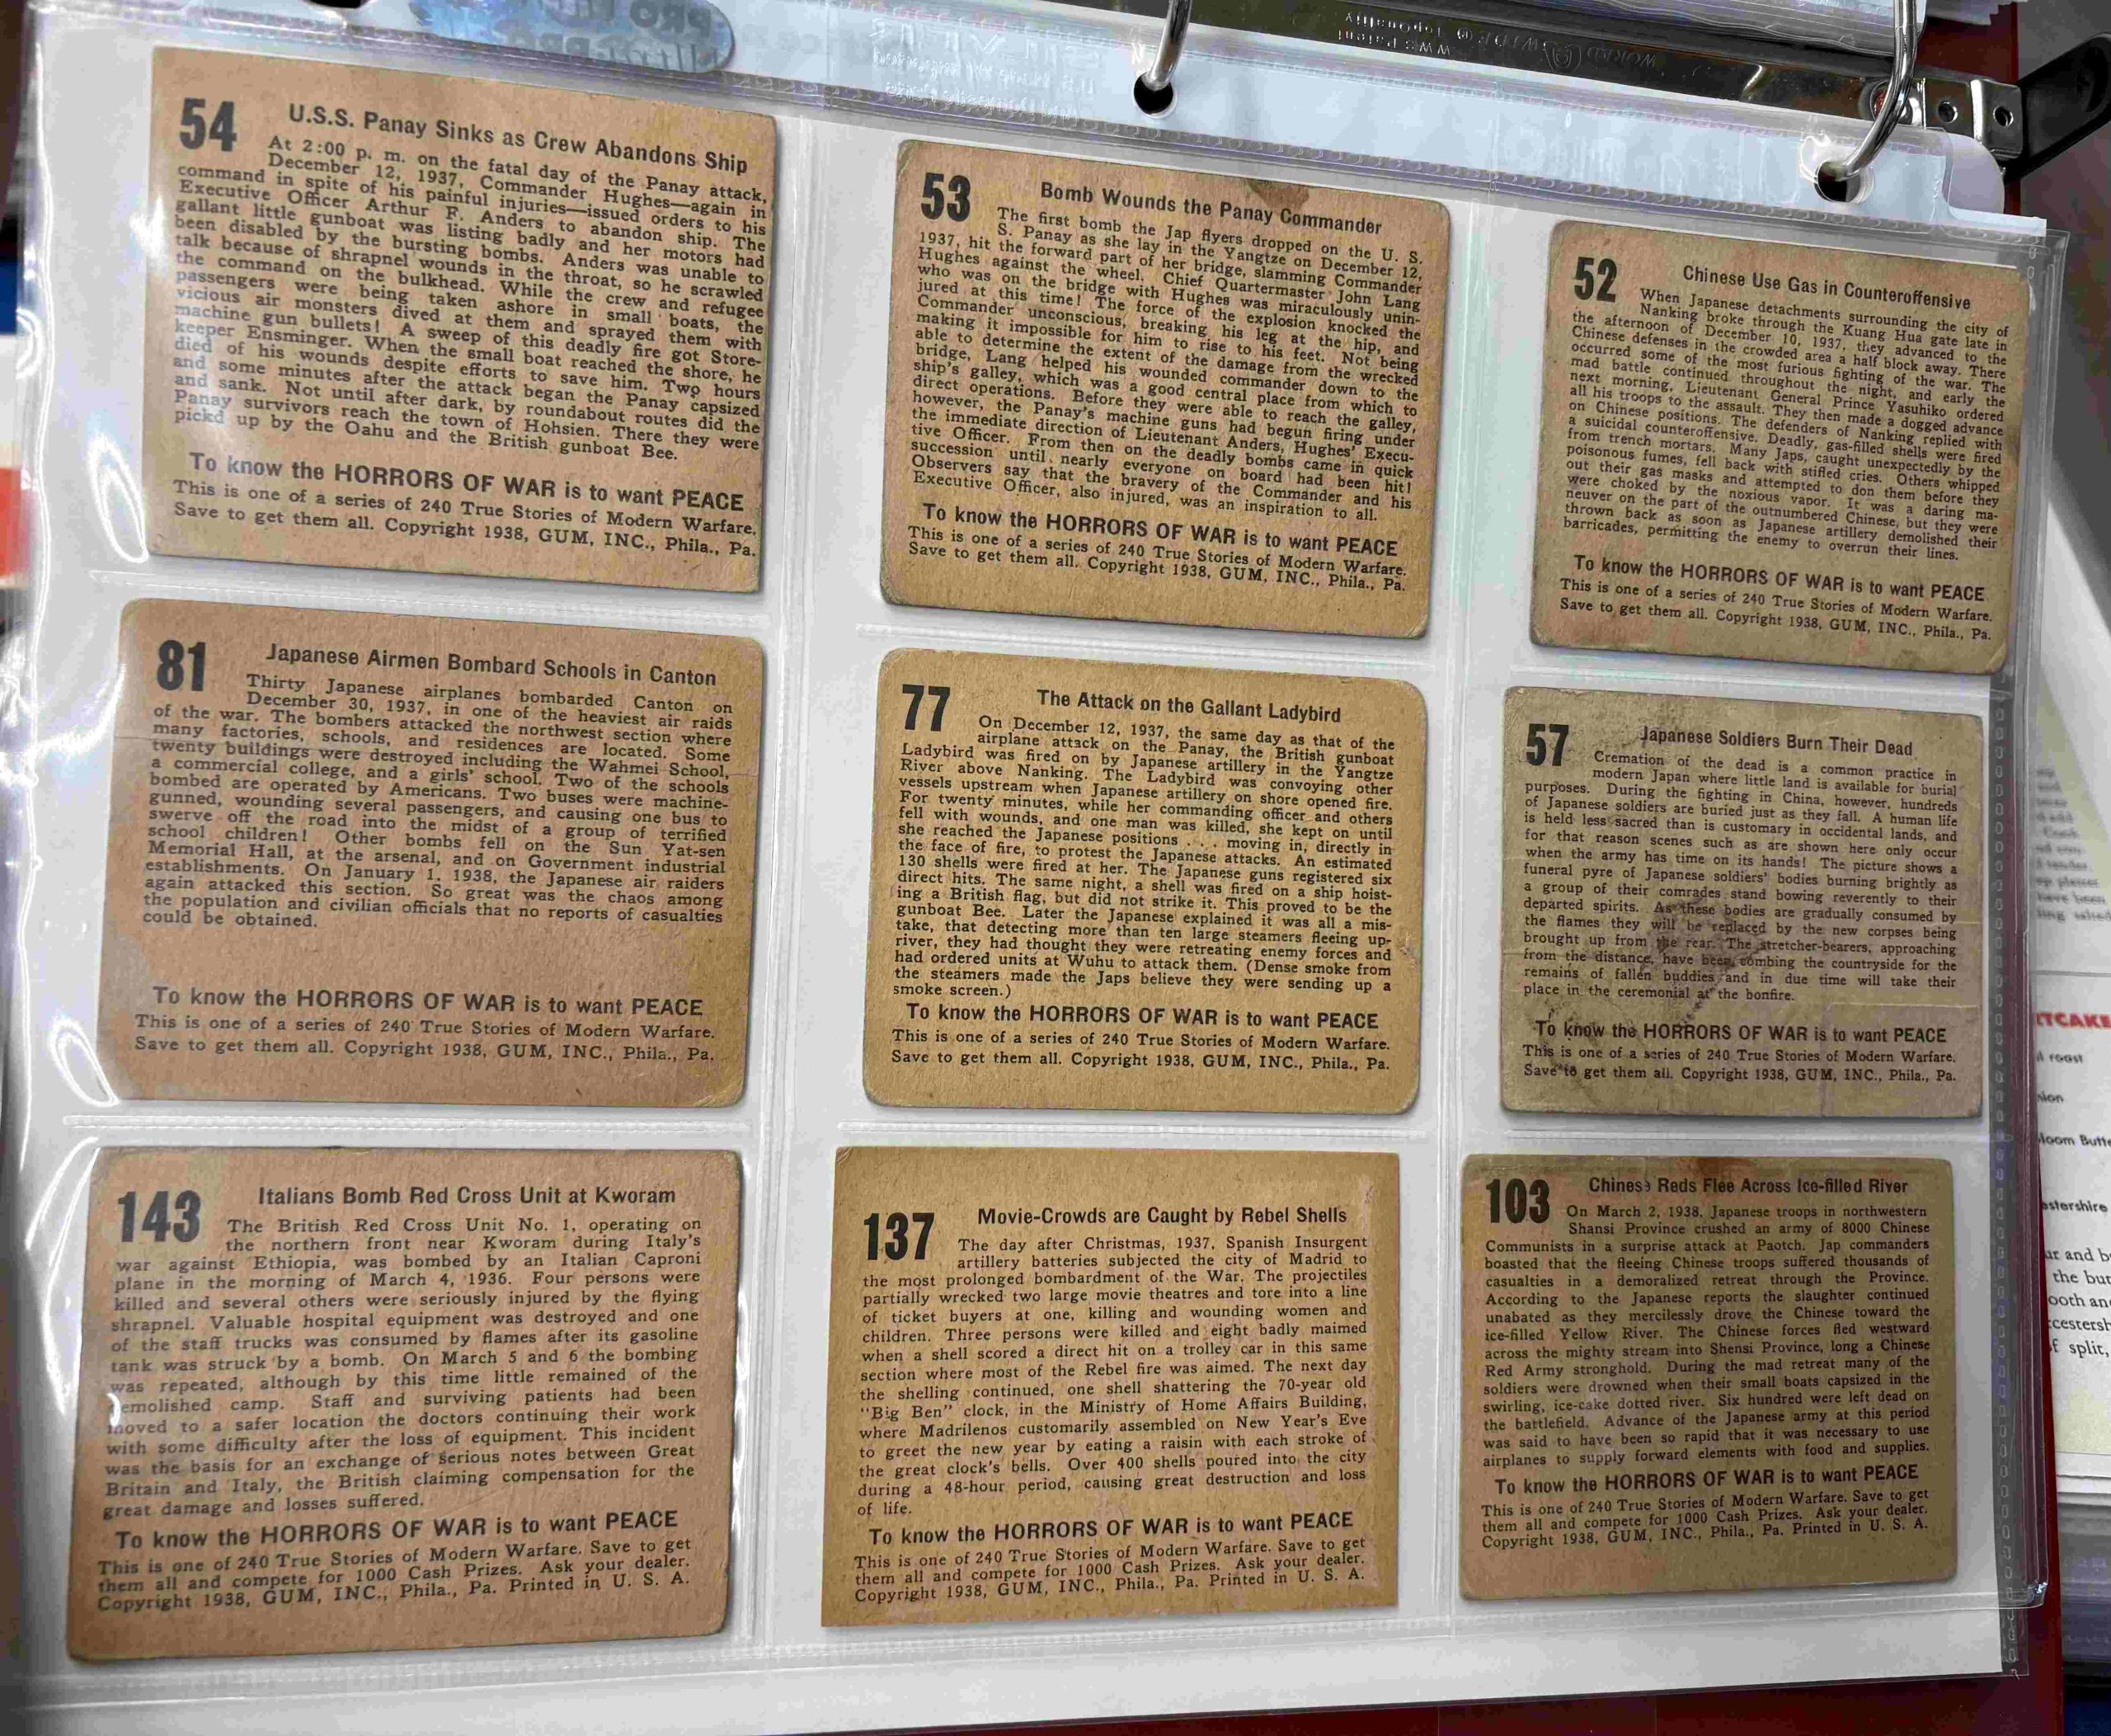 54
U.S.S. Panay Sinks as Crew Abandons Ship
At 2:00 p. m. on the fatal day of the Panay attack,
December 12, 1937, Commander Hughes—again in
command in spite of his painful injuries—issued orders to his
Executive Officer Arthur F. Anders to abandon ship. The
gallant little gunboat was listing badly and her motors had
been disabled by the bursting bombs. Anders was unable to
talk because of shrapnel wounds in the throat, so he scrawled
the command on the bulkhead. While the crew and refugee
passengers were being taken ashore in small boats, the
vicious air monsters dived at them and sprayed them with
machine gun bullets! A sweep of this deadly fire got Store-
keeper Ensminger. When the small boat reached the shore, he
died of his wounds despite efforts to save him. Two hours
and some minutes after the attack began the Panay capsized
and sank. Not until after dark, by roundabout routes did the
Panay survivors reach the town of Hohsien. There they were
pickd up by the Oahu and the British gunboat Bee.
To know the HORRORS OF WAR is to want PEACE
This is one of a series of 240 True Stories of Modern Warfare.
Save to get them all. Copyright 1938, GUM, INC., Phila., Pa.
53
Bomb Wounds the Panay Commander
The first bomb the Jap flyers dropped on the U. S.
S. Panay as she lay in the Yangtze on December 12,
1937, hit the forward part of her bridge, slamming Commander
Hughes against the wheel. Chief Quartermaster John Lang
who was on the bridge with Hughes was miraculously unin-
jured at this time! The force of the explosion knocked the
Commander unconscious, breaking his leg at the hip, and
making it impossible for him to rise to his feet. Not being
able to determine the extent of the damage from the wrecked
bridge, Lang helped his wounded commander down to the
ship's galley, which was a good central place from which to
direct operations. Before they were able to reach the galley,
however, the Panay's machine guns had begun firing under
the immediate direction of Lieutenant Anders, Hughes' Execu-
tive Officer. From then on the deadly bombs came in quick
succession until nearly everyone on board had been hit!
Observers say that the bravery of the Commander and his
Executive Officer, also injured, was an inspiration to all.
To know the HORRORS OF WAR is to want PEACE
This is one of a series of 240 True Stories of Modern Warfare.
Save to get them all. Copyright 1938, GUM, INC., Phila., Pa.
52
Chinese Use Gas in Counteroffensive
When Japanese detachments surrounding the city of
Nanking broke through the Kuang Hua gate late in
the afternoon of December 10, 1937, they advanced to the
Chinese defenses in the crowded area a half block away. There
occurred some of the most furious fighting of the war. The
mad battle continued throughout the night, and early the
next morning, Lieutenant General Prince Yasuhiko ordered
all his troops to the assault. They then made a dogged advance
on Chinese positions. The defenders of Nanking replied with
a suicidal counteroffensive. Deadly, gas-filled shells were fired
from trench mortars. Many Japs, caught unexpectedly by the
poisonous fumes, fell back with stifled cries. Others whipped
out their gas masks and attempted to don them before they
were choked by the noxious vapor. It was a daring ma-
neuver on the part of the outnumbered Chinese, but they were
thrown back as soon as Japanese artillery demolished their
barricades, permitting the enemy to overrun their lines.
To know the HORRORS OF WAR is to want PEACE
This is one of a series of 240 True Stories of Modern Warfare.
Save to get them all. Copyright 1938, GUM, INC., Phila., Pa.
81
Japanese Airmen Bombard Schools in Canton
Thirty Japanese airplanes bombarded Canton on
December 30, 1937, in one of the heaviest air raids
of the war. The bombers attacked the northwest section where
many factories, schools, and residences are located. Some
twenty buildings were destroyed including the Wahmei School,
a commercial college, and a girls' school. Two of the schools
bombed are operated by Americans. Two buses were machine-
gunned, wounding several passengers, and causing one bus to
swerve off the road into the midst of a group of terrified
school children! Other bombs fell on the Sun Yat-sen
Memorial Hall, at the arsenal, and on Government industrial
establishments. On January 1, 1938, the Japanese air raiders
again attacked this section. So great was the chaos among
the population and civilian officials that no reports of casualties
could be obtained.
To know the HORRORS OF WAR is to want PEACE
This is one of a series of 240 True Stories of Modern Warfare.
Save to get them all. Copyright 1938, GUM, INC., Phila., Pa.
77
The Attack on the Gallant Ladybird
On December 12, 1937, the same day as that of the
airplane attack on the Panay, the British gunboat
Ladybird was fired on by Japanese artillery in the Yangtze
River above Nanking. The Ladybird was convoying other
vessels upstream when Japanese artillery on shore opened fire.
For twenty minutes, while her commanding officer and others
fell with wounds, and one man was killed, she kept on until
she reached the Japanese positions . . . moving in, directly in
the face of fire, to protest the Japanese attacks. An estimated
130 shells were fired at her. The Japanese guns registered six
direct hits. The same night, a shell was fired on a ship hoist-
ing a British flag, but did not strike it. This proved to be the
gunboat Bee. Later the Japanese explained it was all a mis-
take, that detecting more than ten large steamers fleeing up-
river, they had thought they were retreating enemy forces and
had ordered units at Wuhu to attack them. (Dense smoke from
the steamers made the Japs believe they were sending up a
smoke screen.)
To know the HORRORS OF WAR is to want PEACE
This is one of a series of 240 True Stories of Modern Warfare.
Save to get them all. Copyright 1938, GUM, INC., Phila., Pa.
57
Japanese Soldiers Burn Their Dead
Cremation of the dead is a common practice in
modern Japan where little land is available for burial
purposes. During the fighting in China, however, hundreds
of Japanese soldiers are buried just as they fall. A human life
is held less sacred than is customary in occidental lands, and
for that reason scenes such as are shown here only occur
when the army has time on its hands! The picture shows a
funeral pyre of Japanese soldiers' bodies burning brightly as
a group of their comrades stand bowing reverently to their
departed spirits. As these bodies are gradually consumed by
the flames they will be replaced by the new corpses being
brought up from the rear. The stretcher-bearers, approaching
from the distance, have been combing the countryside for the
remains of fallen buddies and in due time will take their
place in the ceremonial at the bonfire.
To know the HORRORS OF WAR is to want PEACE
This is one of a series of 240 True Stories of Modern Warfare.
Save to get them all. Copyright 1938, GUM, INC., Phila., Pa.
143
Italians Bomb Red Cross Unit at Kworam
The British Red Cross Unit No. 1, operating on
the northern front near Kworam during Italy's
war against Ethiopia, was bombed by an Italian Caproni
plane in the morning of March 4, 1936. Four persons were
killed and several others were seriously injured by the flying
shrapnel. Valuable hospital equipment was destroyed and one
of the staff trucks was consumed by flames after its gasoline
tank was struck by a bomb. On March 5 and 6 the bombing
was repeated, although by this time little remained of the
demolished camp. Staff and surviving patients had been
moved to a safer location the doctors continuing their work
with some difficulty after the loss of equipment. This incident
was the basis for an exchange of serious notes between Great
Britain and Italy, the British claiming compensation for the
great damage and losses suffered.
To know the HORRORS OF WAR is to want PEACE
This is one of 240 True Stories of Modern Warfare. Save to get
them all and compete for 1000 Cash Prizes. Ask your dealer.
Copyright 1938, GUM, INC., Phila., Pa. Printed in U. S. A.
137
Movie-Crowds are Caught by Rebel Shells
The day after Christmas, 1937, Spanish Insurgent
artillery batteries subjected the city of Madrid to
the most prolonged bombardment of the War. The projectiles
partially wrecked two large movie theatres and tore into a line
of ticket buyers at one, killing and wounding women and
children. Three persons were killed and eight badly maimed
when a shell scored a direct hit on a trolley car in this same
section where most of the Rebel fire was aimed. The next day
the shelling continued, one shell shattering the 70-year old
"Big Ben" clock, in the Ministry of Home Affairs Building,
where Madrilenos customarily assembled on New Year's Eve
to greet the new year by eating a raisin with each stroke of
the great clock's bells. Over 400 shells poured into the city
during a 48-hour period, causing great destruction and loss
of life.
To know the HORRORS OF WAR is to want PEACE
This is one of 240 True Stories of Modern Warfare. Save to get
them all and compete for 1000 Cash Prizes. Ask your dealer.
Copyright 1938, GUM, INC., Phila., Pa. Printed in U. S. A.
103
Chinese Reds Flee Across Ice-filled River
On March 2, 1938, Japanese troops in northwestern
Shansi Province crushed an army of 8000 Chinese
Communists in a surprise attack at Paotch. Jap commanders
boasted that the fleeing Chinese troops suffered thousands of
casualties in a demoralized retreat through the Province.
According to the Japanese reports the slaughter continued
unabated as they mercilessly drove the Chinese toward the
ice-filled Yellow River. The Chinese forces fled westward
across the mighty stream into Shensi Province, long a Chinese
Red Army stronghold. During the mad retreat many of the
soldiers were drowned when their small boats capsized in the
swirling, ice-cake dotted river. Six hundred were left dead on
the battlefield. Advance of the Japanese army at this period
was said to have been so rapid that it was necessary to use
airplanes to supply forward elements with food and supplies.
To know the HORRORS OF WAR is to want PEACE
This is one of 240 True Stories of Modern Warfare. Save to get
them all and compete for 1000 Cash Prizes. Ask your dealer.
Copyright 1938, GUM, INC., Phila., Pa. Printed in U. S. A.
WORLD WIDE TopQuality
WWS Patent
PRO
TCAKE
roast
and
the
split,